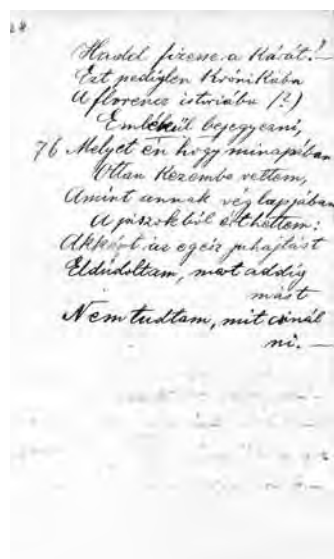 Hadd fizesse a Kárát!—
Ezt pediglen Krónikába
A florencz istoriába (?)
Emlékül bejegyezni,
76 Melyet én hogy minapában
Ottan kezembe vettem,
Amint annak véglapjában
A jászokból érthettem:
Akként az egész juhajtást
Eldúdoltam, mert addig
mást
Nem tudtam, mit csinál
ni.—